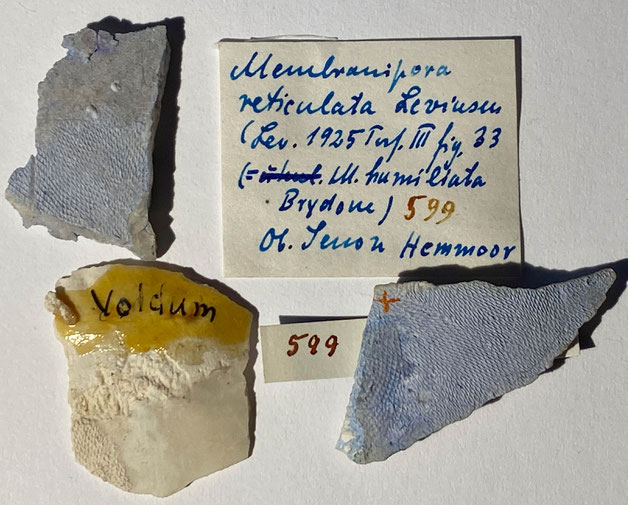 Membranipora
reticulata Levinsen
(Lev. 1925 Taf. III fig. 33
(= M. humiliata
Brydone) 599
Ob. Senon Hemmoor
Voldum
599